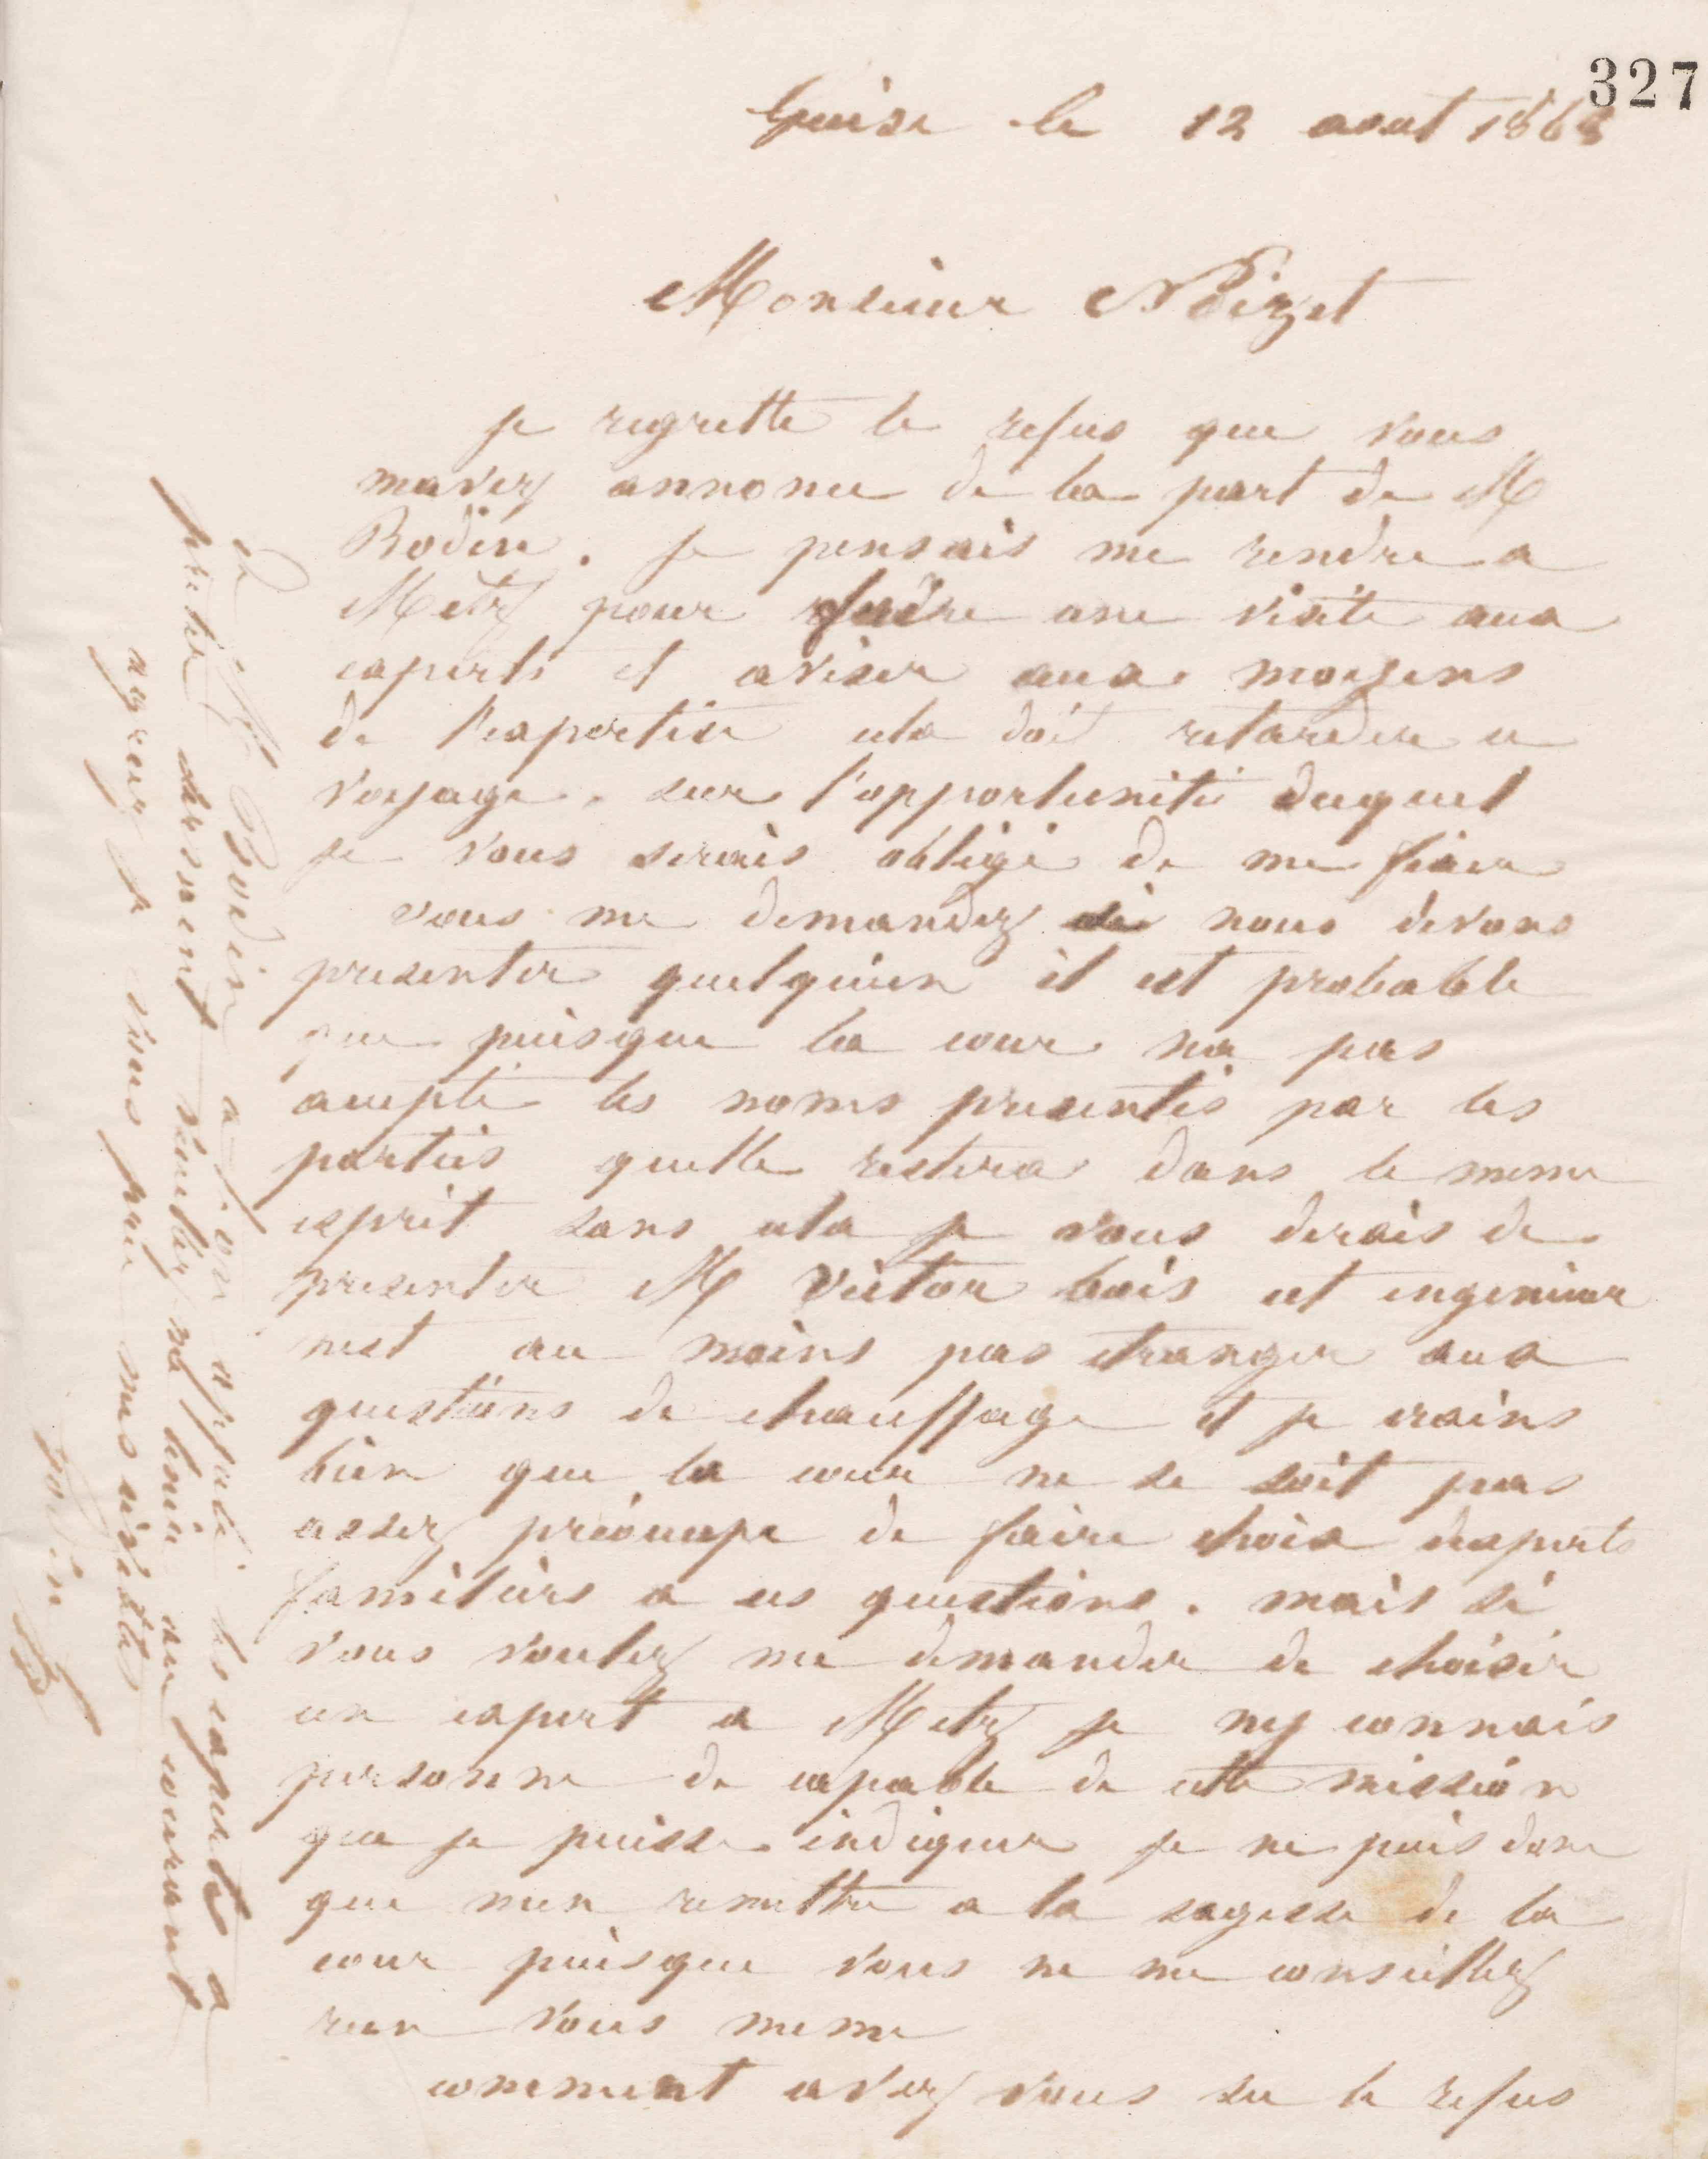 327
Guise le 12 aout 1868
Monsieur Noizet
je regrette le refus que vous
mavez annonce de la part de M
Bodin. je pensais me rendre a
Metz pour faire une visite aux
experts et aviser aux moyens
de l'expertise cela doit retarder ce
voyage. sur l'opportunité duquel
je vous serais obligé de me fixer
vous me demandez si nous devons
presenter quelquun il est probable
que puisque la cour na pas
accepté les noms presentés par les
parties quelle restera dans le meme
esprit sans cela je vous dirais de
presenter M Victor bois cet ingenieur
nest au moins pas etranger aux
questions de chauffage et je crains
bien que la cour ne se soit pas
assez préoccupe de faire choix dexperts
familiers a ces questions. mais si
vous voulez me demander de choisir
un expert a Metz je ny connais
personne de capable de cette mission
que je puisse indiquer je ne puis donc
que men remettre a la sagesse de la
cour puisque vous ne me conseillez
rien vous meme
comment avez vous su le refus
de M Bodin a-t-on appelé les experts a
preter serment veuillez me tenir au courant
agreez je vous prie mes civilités
Godin